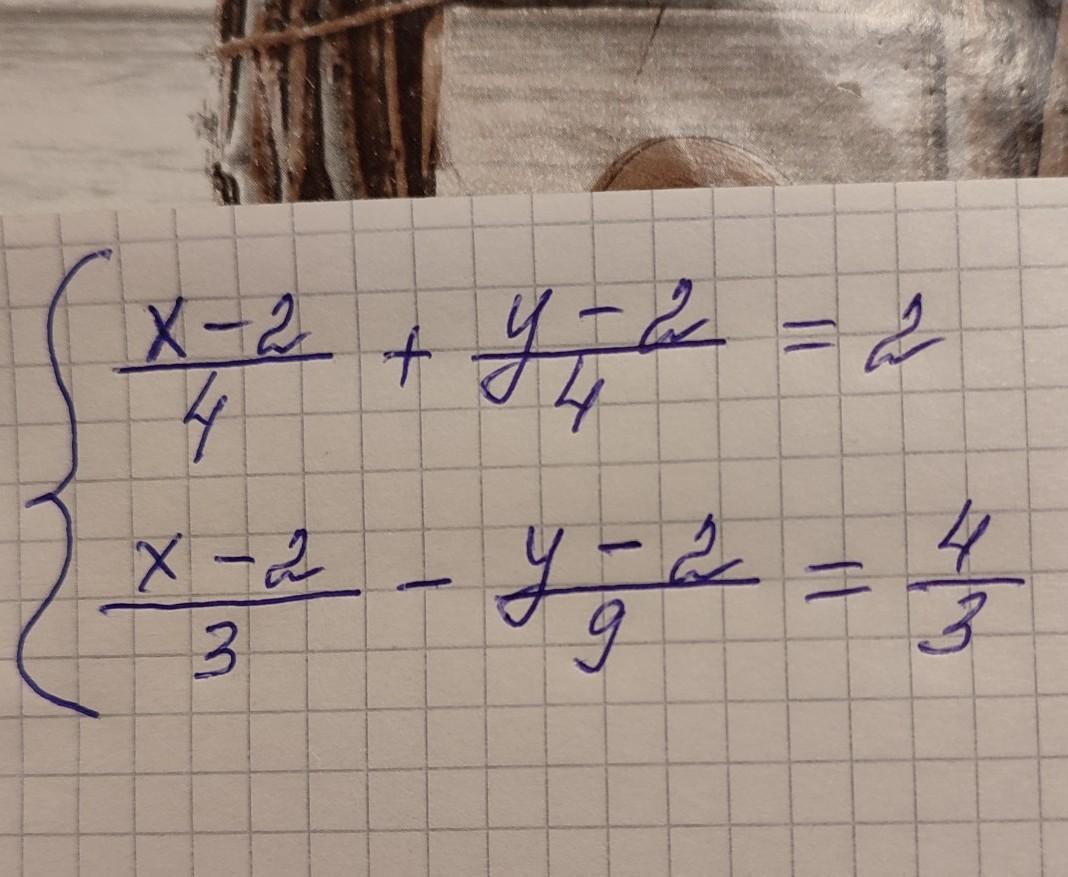 { (x-2)/4 + (y-2)/4 = 2
(x-2)/3 - (y-2)/9 = 4/3